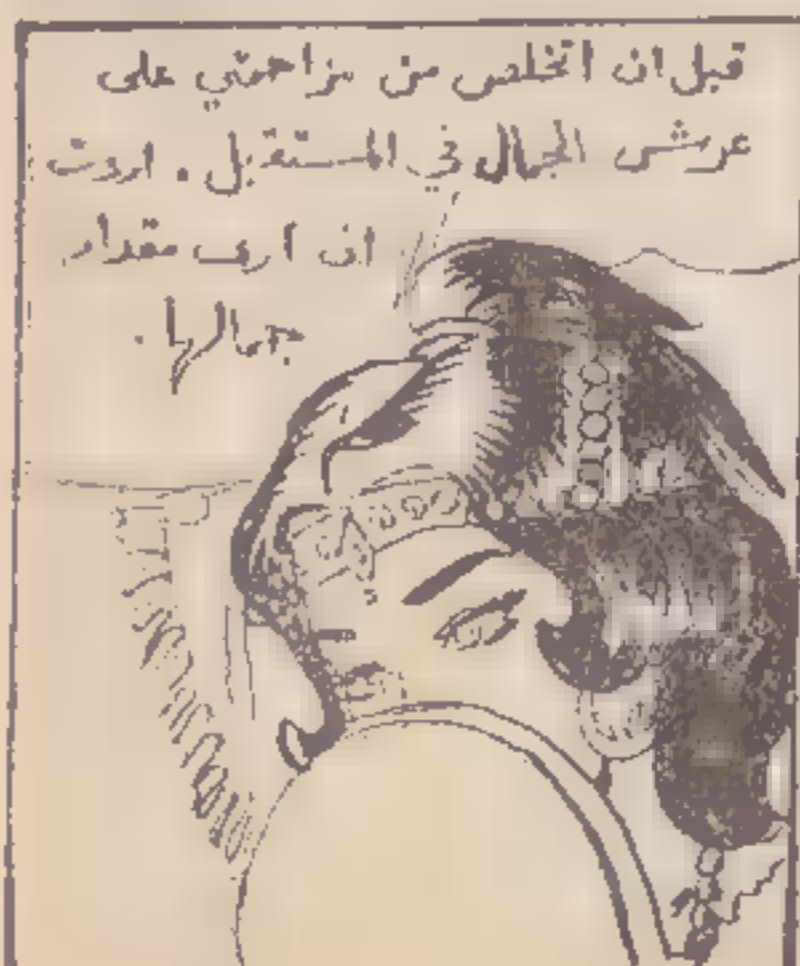 قبل ان اتخلص من مزاحمتي على
عرش الجمال في المستقبل . اردت
ان ارى مقدار
جمالها .